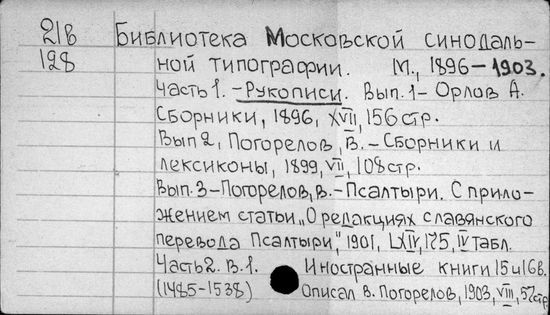 21в Библиотека Московской синодаль-
128 ной типографии. М., 1896-1903.
Часть 1. - Рукописи. Вып. 1- Орлов А.
Сборники, 1896, XVII, 156 стр.
Вып 2, Погорелов, В. - Сборники и
лексиконы, 1899, VII, 108 стр.
Вып. 3-Погорелов, В. - Псалтыри. С прило-
жением статьи „О редакциях славянского
перевода Псалтыри", 1901, LXIV, 175, IV табл.
Часть 2. В. 1. Иностранные книги 15 и 16 в.
(1485-1538) Описал В. Погорелов, 1903, VIII, 57 стр